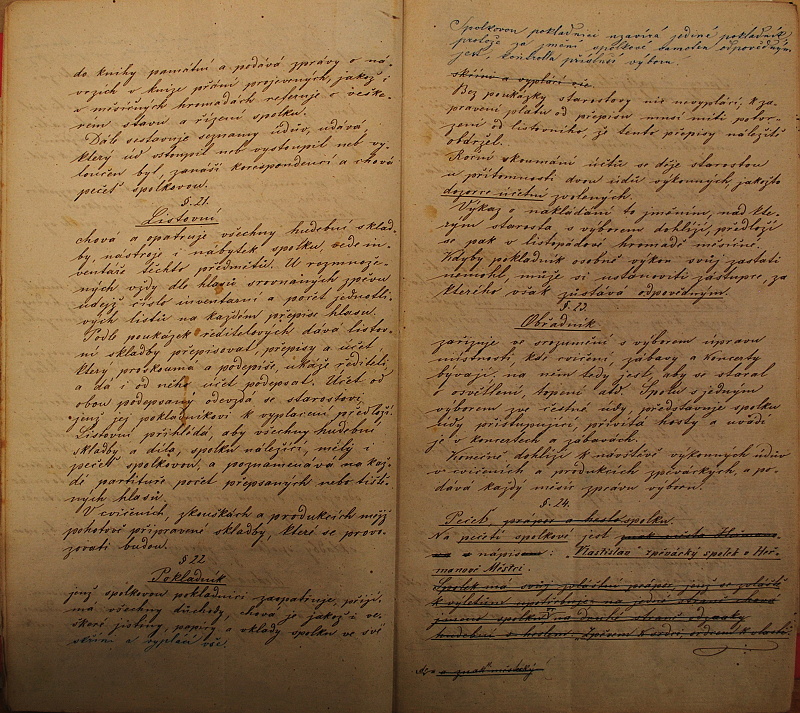 do knihy památní a podává zprávy o ná-
vrzích v knize přání projevených, jakož i
v měsíčných hromadách referuje o veške-
rém stavu a řízení spolku.
Dále sestavuje seznamy údův, udává
který úd vstoupil neb vystoupil neb vy-
loučen byl, zanáší korespondenci a chová
pečeť spolkovou.
§. 21.
Listovní
chová a opatruje všechny hudební sklad-
by, nástroje i nábytek spolku, vede in-
ventáře těchto předmětů. U rozmnože-
ných vždy dle hlasů srovnaných zpěvů
udejž číslo inventární a počet jednotli-
vých listů na každém přepise hlasu.
Podlé poukázek ředitelových dává listov-
ní skladby přepisovati, přepisy a účet
který, proskoumá a podepíše, ukáže řediteli
a dá i od něho účet podepsat. Účet od
obou podepsaný odevzdá se starostovi
jenž jej pokladníkovi k vyplacení předloží.
Listovní přihlédá, aby všechny hudební
skladby a díla, spolku náležící, měly i
pečeť spolkovou, a poznamenává na kaž-
dé partituře počet přepsaných nebo tiště-
ných hlasů.
V cvičeních, zkouškách a produkcích mějž
pohotově připravené skladby, které se provo-
zovati budou.
§ 22
Pokladník
jenž spolkovou pokladnici zaopatřuje, přijí-
má všechny důchody, chová je jakož i ve-
škeré jistiny, popisy a vklady spolku ve své
skříni a vyplácí vše.
Spolkovou pokladnici uzavírá jediné pokladník,
protože za jmění spolkové samoten odpovědným
jest, kontrola přísluší výboru.
skříni a vyplácí vše.
Bez poukázky starostovy nic nevyplácí, k za-
pravení platu od přepisu musí míti potvr-
zení od listovního, že tento přepisy náležitě
obdržel.
Roční skoumání účtů se děje starostou
u přítomnosti dvou údů výkonných, jakožto
dozorce účetní zvolených.
Výkaz o nakládání to jměním, nad kte-
rým starosta s výborem dohlíží, předloží
se pak v listopádové hromadě měsíčné.
Kdyby pokladník osobně výkon svůj zastati
nemohl, může si ustanoviti zástupce, za
kterého však zůstává odpovědným.
§. 23.
Obřadník
zařizuje ve srozumění s výborem úpravu
místnosti, kde cvičení, zábavy a koncerty
bývají, na něm tedy jest, aby se staral
o osvětlení, topení atd. Spolu s jedným
výborem zve čestné údy, představuje spolku
údy přistupující, přivítá hosty a uvádí
je v koncertech a zábavách.
Konečně dohlíží k návštěvě výkonných údův
v cvičeních a produkcích zpěváckých, a po-
dává každý měsíc zprávu výboru.
§. 24.
Pečeť, prápor a heslo spolku.
Na pečeti spolkové jest
a nápisem: „Vlastislav“ zpěvácký spolek v Heř-
manově Městci.
Spolek má svůj zvláštní prápor, jenž se
k výletům na jedné straně chová
jméno spolku na druhé straně odznaky
hudební s heslem „Zpěvem k srdci, srdcem k vlasti“.